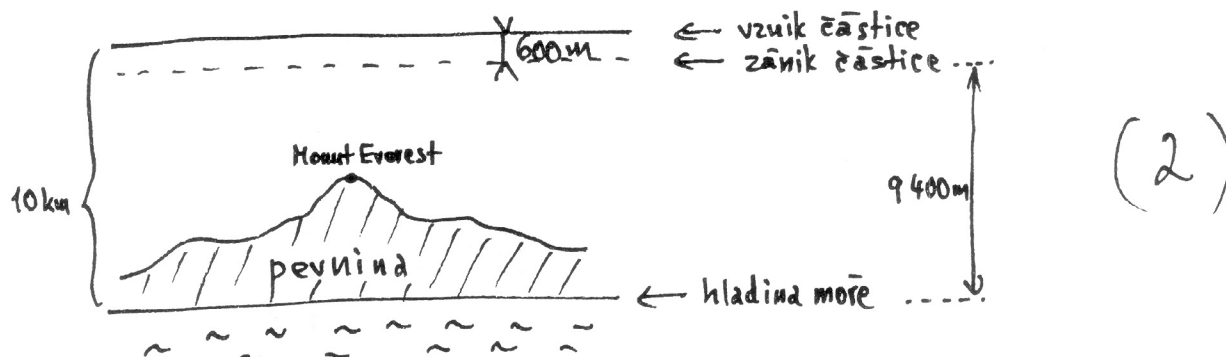 ← vznik částice
600 m
← zánik částice
Mount Everest
10 km
9 400m
(2)
pevnina
← hladina moře